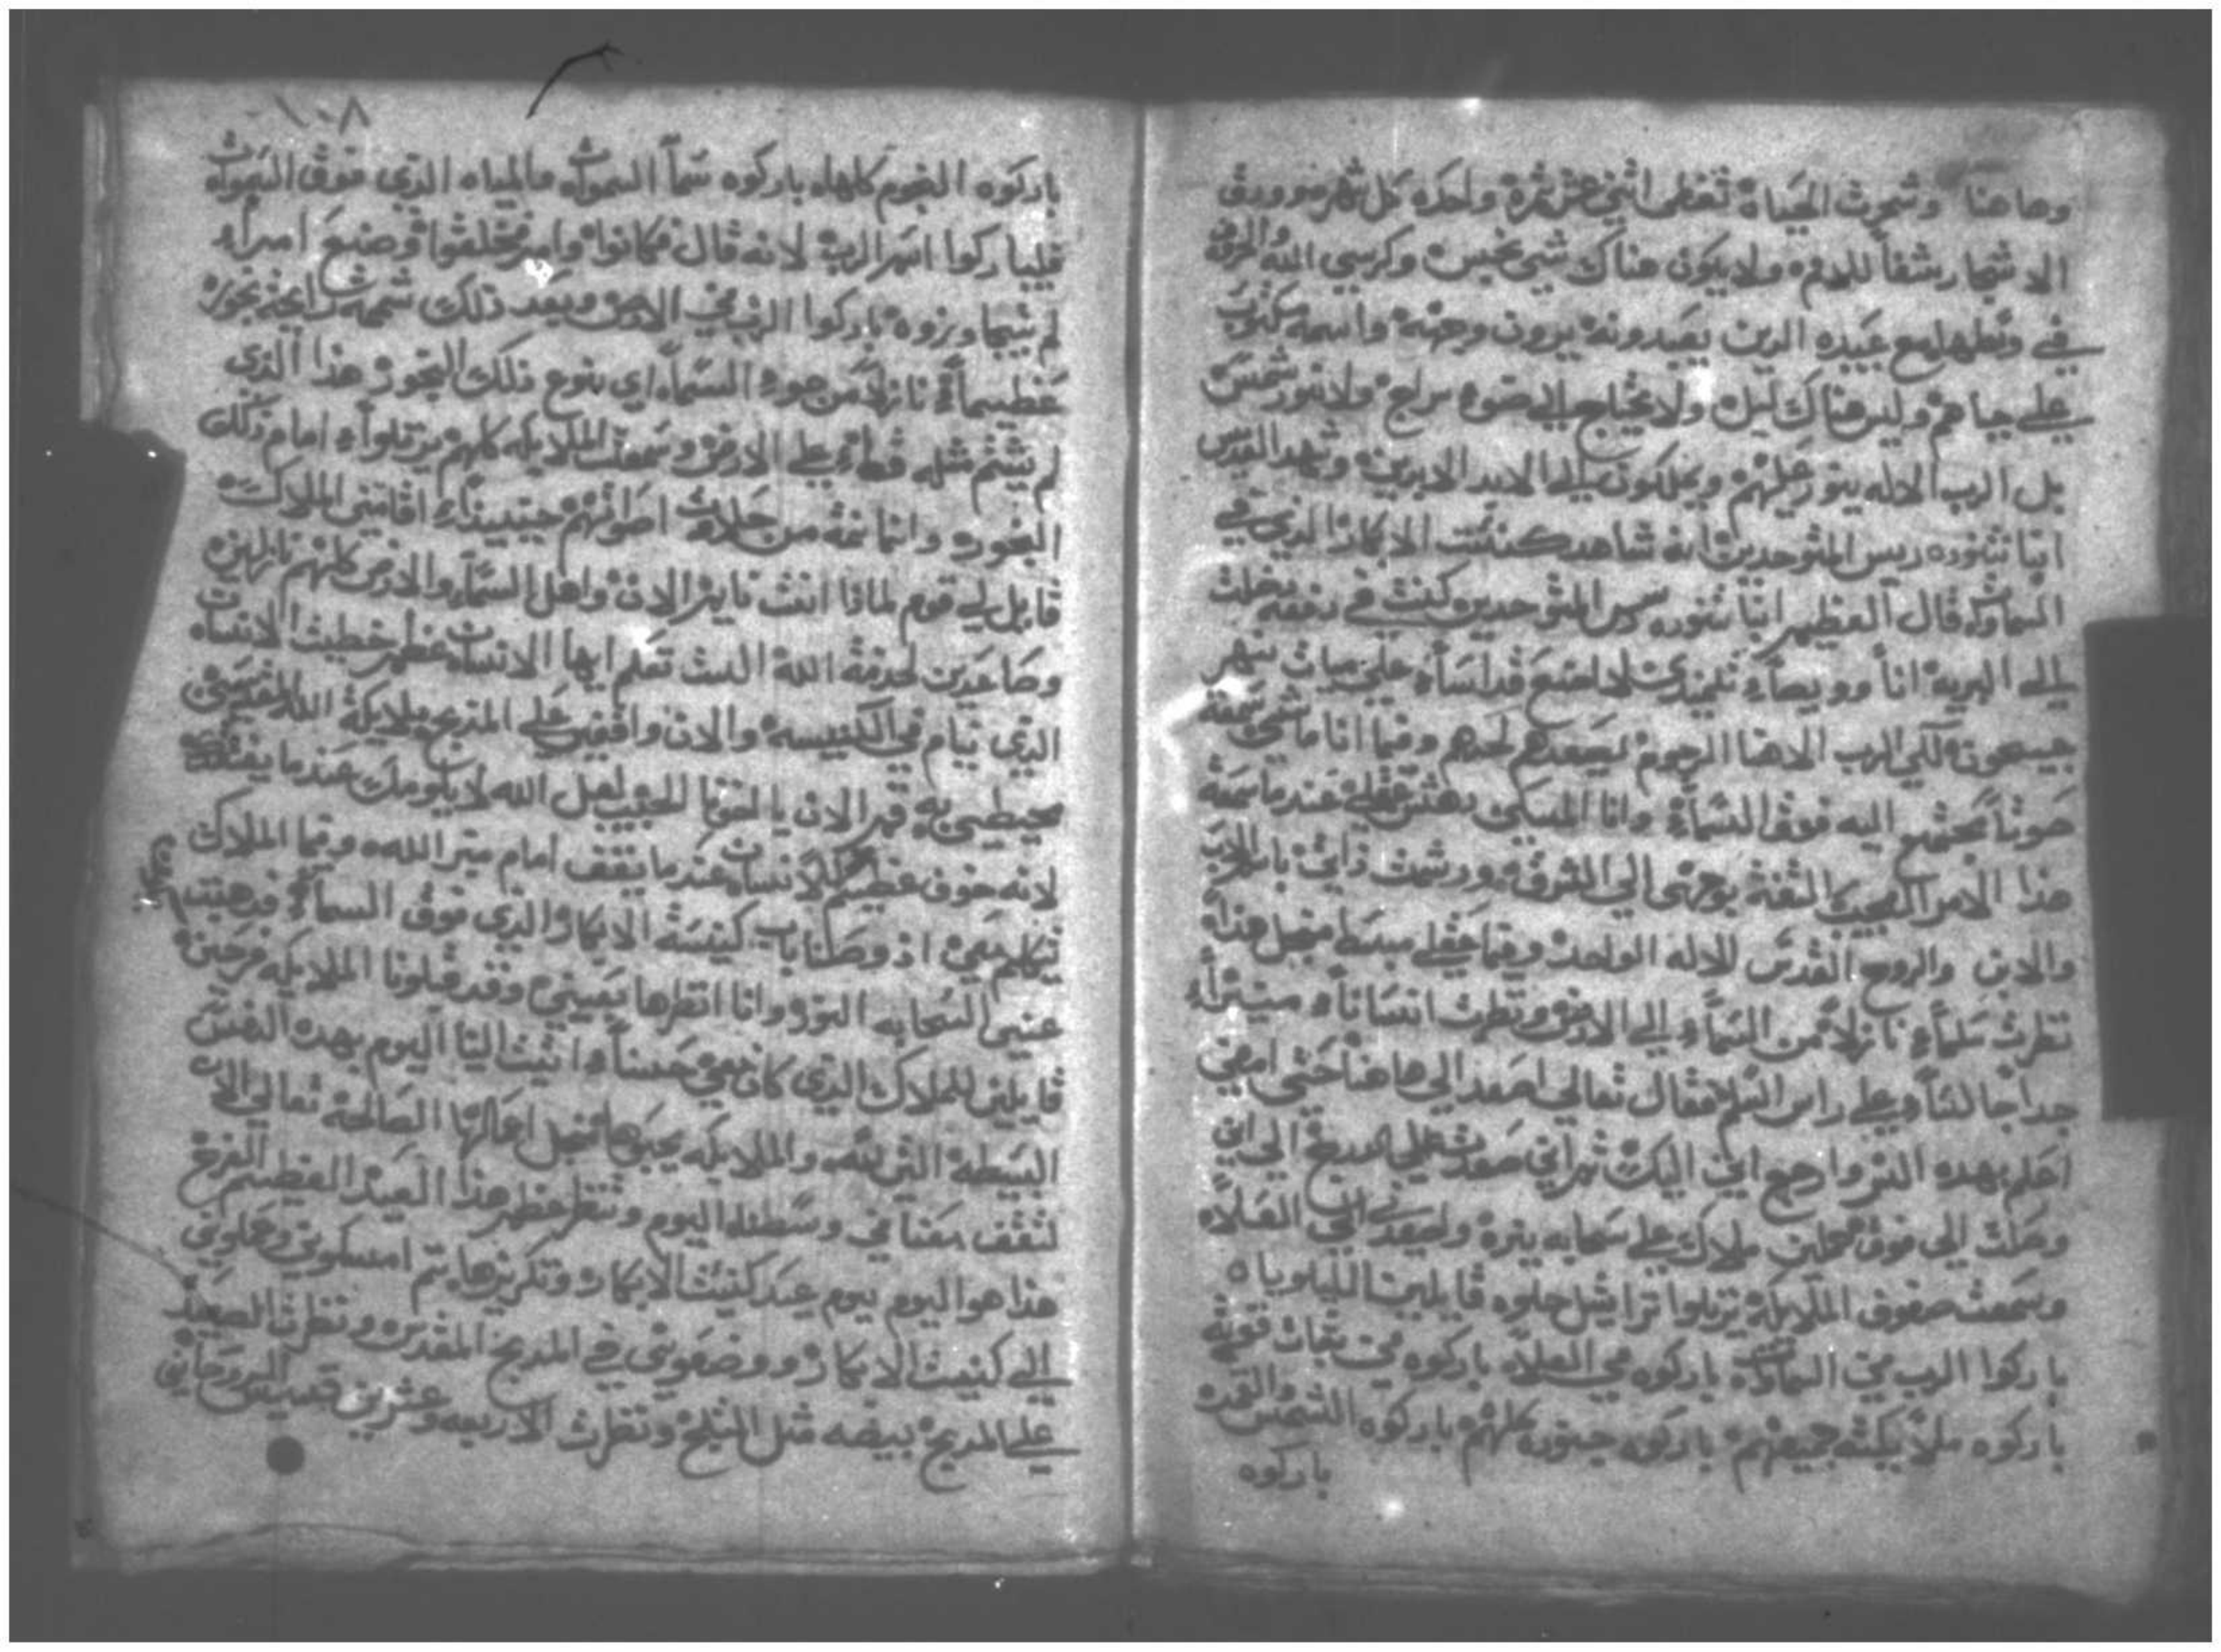 وهاهنا وشجرت الحياة تعطى اثني عشر ثمرة واحده كل شهر وورق
الاشجار شفاً للامم ولا يكون هناك شي نجس وكرسي الله والخروف
في وسطها مع عبيده الدين يعبدونه يرون وجهه واسمه مكتوب
على جباههم وليس هناك ليل ولا يحتاج الى ضوء سراج ولا نور شمس
بل الرب الاله ينور عليهم ويملكون الى الابد الابدين وشهد القديس
انبا شنوده ريس المتوحدين انه شاهد كنيست الابكار الذي في
السماوات قال العظيم انبا شنوده ريس المتوحدين كنت في دفعه دخلت
الى البرية انا وويصا تلميذي لاصنع قداسا على ميات شهر
جسمعون لكي الرب الاهنا الرحوم يسعدهم لحدهم وفيما انا ماشي سمعة
صوتاً مجتمع اليه فوق السماء وانا المسكين دهش عقلي عندما سمعة
هذا الامر العجيب التفتة بوجهى الي الشرق ورشمت ذاتي باسم الاب
والابن والروح القدس للاله الواحد وفيما عقلي مبسط منجل هذا
نظرت سلماً نازلاً من السماء الي الارض ونظرت انسانا منيراً
جدا جالساً على راس السلم فقال تعالي اصعد الي هاهنا حتي امضي
اعلم بهده السر وارجع اتي اليك ثم اني صعدت علي الدرج الي اين
وصلت الى فوق فحملني ملاك على سحابه نيرة واصعدني الي العلاء
وسمعت صفوف الملايكة يرتلوا تراتيل حلوه قايلين الليلوياه
باركوا الرب من السماوات باركوه في العلاء باركوه في ثبات قوته
باركوه ملايكته جميعهم باركوه جنوده كلهم باركوه الشمس والقمر
باركوه
١٠٨
باركوه النجوم كلها باركوه سما السموات والمياه الذي فوق السموات
فليباركوا اسم الرب لانه قال فكانوا وامر فخلقوا وضع امراء
لم يتجاوزوه باركوا الرب في الارض وبعد ذلك شممت رايحة بخور
عظيماً نازلاً من جوء السماء اي بنوع ذلك البخور هذا الذي
لم يشتم مثله قط على الارض وسمعت الملايكه كلهم يرتلوا امام ذلك
البخور وانا تهة من حلاوت اصواتهم حينيذ اقامني الملاك
قايل لي قوم لماذا انت نايم الان واهل السماء والارض كلهم نازلين
وصاعدين لخدمة الله الست تعلم ايها الانسان عظم خطيت الانسان
الذي ينام في الكنيسه والان واقفين على المذبح ملايكة الله القديسين
محيطين به قم الان يا اخونا الحبيب لعل الله لا يلومك عندما يفتقدك
لانه خوف عظيم للانسان عندما يقف امام منبر الله وفيما الملاك
يتكلم معي اذ وصلنا باب كنيسة الابكار الذي فوق السماء فذهبت
عني السحابه النور وانا انظرها بعيني وقد قبلونا الملايكه فرحين
قايلين للملاك الذي كان معي حسناً اتيت الينا اليوم بهده النفس
البسيطه التي لله والملايكه يحبوها منجل اعمالها الصالحة تعالي الان
لتقف معنا في وسطنا اليوم وتنظر عظم هذا العيد العظيم الفرح
هذا هو اليوم يوم عيد كنيست الابكار وتكريزها ثم امسكوني وحملوني
الي كنيست الابكار ووضعوني في المذبح المقدس ونظرت الصعيد
على المذبح بيضه مثل الثلج ونظرت الاربعه وعشرين قسيس الروحاني